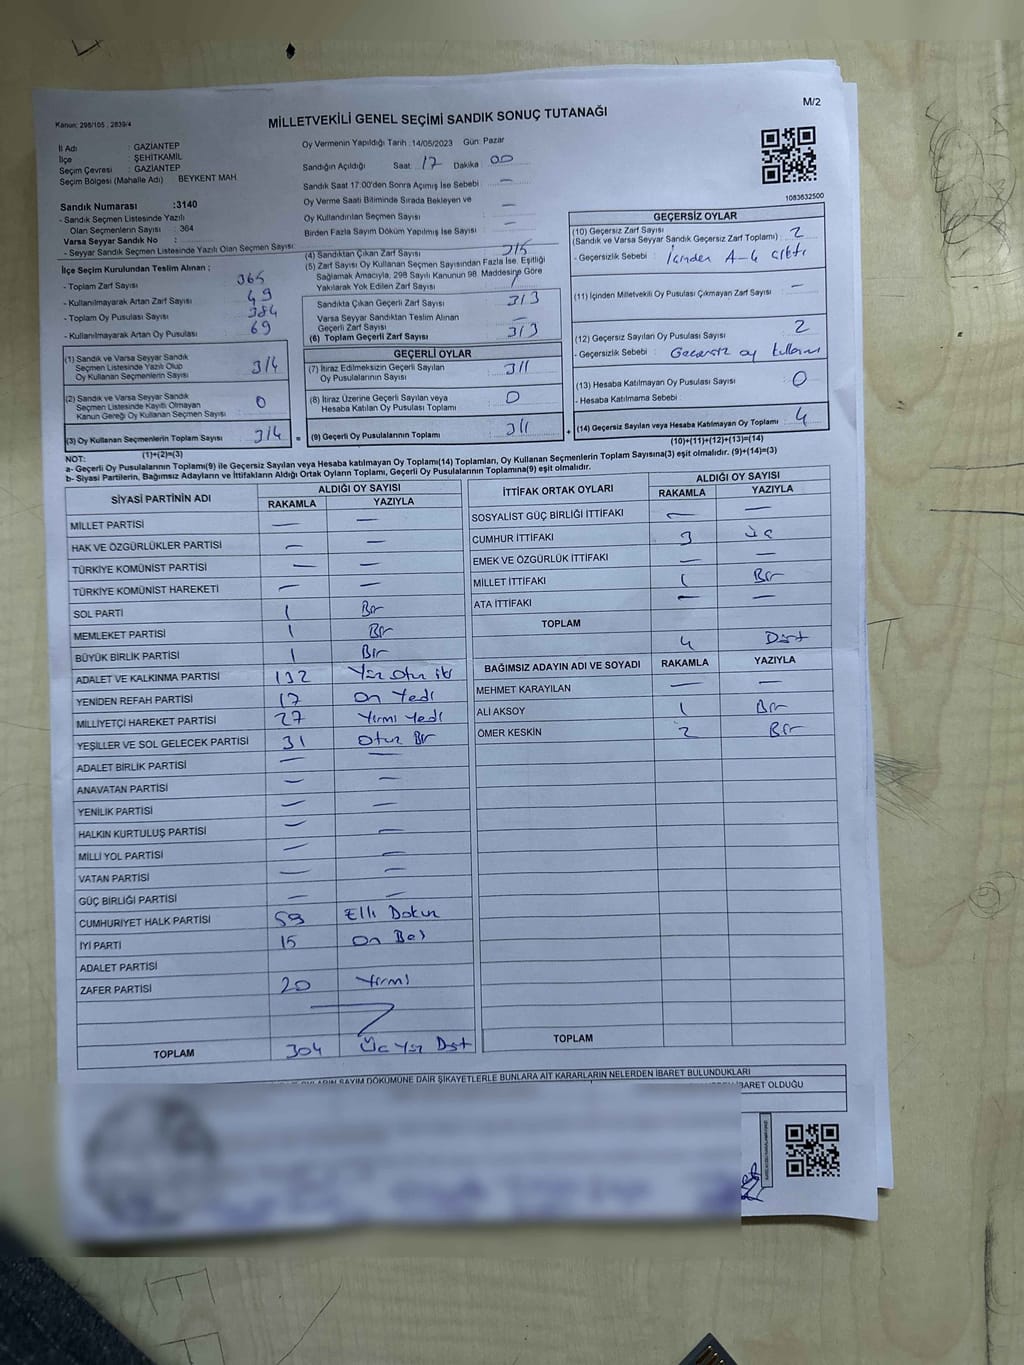 M/2
Kanun: 298/105 , 2839/4
MİLLETVEKİLİ GENEL SEÇİMİ SANDIK SONUÇ TUTANAĞI
İl Adı : GAZİANTEP
İlçe : ŞEHİTKAMİL
Seçim Çevresi : GAZİANTEP
Seçim Bölgesi (Mahalle Adı) BEYKENT MAH
Sandık Numarası :3140
- Sandık Seçmen Listesinde Yazılı
Olan Seçmenlerin Sayısı : 364
Varsa Seyyar Sandık No :
- Seyyar Sandık Seçmen Listesinde Yazılı Olan Seçmen Sayısı:
İlçe Seçim Kurulundan Teslim Alınan ;
- Toplam Zarf Sayısı 365
- Kullanılmayarak Artan Zarf Sayısı 49
- Toplam Oy Pusulası Sayısı 384
- Kullanılmayarak Artan Oy Pusulası 69
(1) Sandık ve Varsa Seyyar Sandık
Seçmen Listesinde Yazılı Olup
Oy Kullanan Seçmenlerin Sayısı 314
(2) Sandık ve Varsa Seyyar Sandık
Seçmen Listesinde Kayıtlı Olmayan
Kanun Gereği Oy Kullanan Seçmen Sayısı 0
(3) Oy Kullanan Seçmenlerin Toplam Sayısı 314 =
(1)+(2)=(3)
Oy Vermenin Yapıldığı Tarih : 14/05/2023 Gün: Pazar
Sandığın Açıldığı Saat 17 Dakika 00
Sandık Saat 17:00'den Sonra Açılmış İse Sebebi : —
Oy Verme Saati Bitiminde Sırada Bekleyen ve
Oy Kullandırılan Seçmen Sayısı : —
Birden Fazla Sayım Döküm Yapılmış İse Sayısı : —
(4) Sandıktan Çıkan Zarf Sayısı 315
(5) Zarf Sayısı Oy Kullanan Seçmen Sayısından Fazla İse, Eşitliği
Sağlamak Amacıyla, 298 Sayılı Kanunun 98. Maddesine Göre
Yakılarak Yok Edilen Zarf Sayısı : 1
Sandıkta Çıkan Geçerli Zarf Sayısı 313
Varsa Seyyar Sandıktan Teslim Alınan
Geçerli Zarf Sayısı —
(6) Toplam Geçerli Zarf Sayısı 313
GEÇERLİ OYLAR
(7) İtiraz Edilmeksizin Geçerli Sayılan
Oy Pusulalarının Sayısı 311
(8) İtiraz Üzerine Geçerli Sayılan veya
Hesaba Katılan Oy Pusulası Toplamı 0
(9) Geçerli Oy Pusulalarının Toplamı 311 +
1083632500
GEÇERSİZ OYLAR
(10) Geçersiz Zarf Sayısı 2
(Sandık ve Varsa Seyyar Sandık Geçersiz Zarf Toplamı) :
- Geçersizlik Sebebi : İçinden A-4 çıktı
(11) İçinden Milletvekili Oy Pusulası Çıkmayan Zarf Sayısı : —
(12) Geçersiz Sayılan Oy Pusulası Sayısı 2
- Geçersizlik Sebebi : Geçersiz oy
(13) Hesaba Katılmayan Oy Pusulası Sayısı 0
- Hesaba Katılmama Sebebi :
(14) Geçersiz Sayılan veya Hesaba Katılmayan Oy Toplamı 4
(10)+(11)+(12)+(13)=(14)
NOT:
a- Geçerli Oy Pusulalarının Toplamı(9) ile Geçersiz Sayılan veya Hesaba katılmayan Oy Toplamı(14) Toplamları, Oy Kullanan Seçmenlerin Toplam Sayısına(3) eşit olmalıdır. (9)+(14)=(3)
b- Siyasi Partilerin, Bağımsız Adayların ve İttifakların Aldığı Ortak Oyların Toplamı, Geçerli Oy Pusulalarının Toplamına(9) eşit olmalıdır.
SİYASİ PARTİNİN ADI ALDIĞI OY SAYISI
RAKAMLA YAZIYLA
MİLLET PARTİSİ — —
HAK VE ÖZGÜRLÜKLER PARTİSİ — —
TÜRKİYE KOMÜNİST PARTİSİ — —
TÜRKİYE KOMÜNİST HAREKETİ — —
SOL PARTİ 1 Bir
MEMLEKET PARTİSİ 1 Bir
BÜYÜK BİRLİK PARTİSİ 1 Bir
ADALET VE KALKINMA PARTİSİ 132 Yüz Otuz iki
YENİDEN REFAH PARTİSİ 17 On Yedi
MİLLİYETÇİ HAREKET PARTİSİ 27 Yirmi Yedi
YEŞİLLER VE SOL GELECEK PARTİSİ 31 Otuz Bir
ADALET BİRLİK PARTİSİ — —
ANAVATAN PARTİSİ — —
YENİLİK PARTİSİ — —
HALKIN KURTULUŞ PARTİSİ — —
MİLLİ YOL PARTİSİ — —
VATAN PARTİSİ — —
GÜÇ BİRLİĞİ PARTİSİ — —
CUMHURİYET HALK PARTİSİ 59 Elli Dokuz
İYİ PARTİ 15 On Beş
ADALET PARTİSİ
ZAFER PARTİSİ 20 Yirmi
TOPLAM 304 Üç Yüz Dört
İTTİFAK ORTAK OYLARI ALDIĞI OY SAYISI
RAKAMLA YAZIYLA
SOSYALİST GÜÇ BİRLİĞİ İTTİFAKI — —
CUMHUR İTTİFAKI 3 Üç
EMEK VE ÖZGÜRLÜK İTTİFAKI — —
MİLLET İTTİFAKI 1 Bir
ATA İTTİFAKI — —
TOPLAM 4 Dört
BAĞIMSIZ ADAYIN ADI VE SOYADI RAKAMLA YAZIYLA
MEHMET KARAYILAN — —
ALİ AKSOY 1 Bir
ÖMER KESKİN 2 Bir
TOPLAM
SAYIM DÖKÜMÜNE DAİR ŞİKAYETLERLE BUNLARA AİT KARARLARIN NELERDEN İBARET BULUNDUKLARI
İBARET OLDUĞU